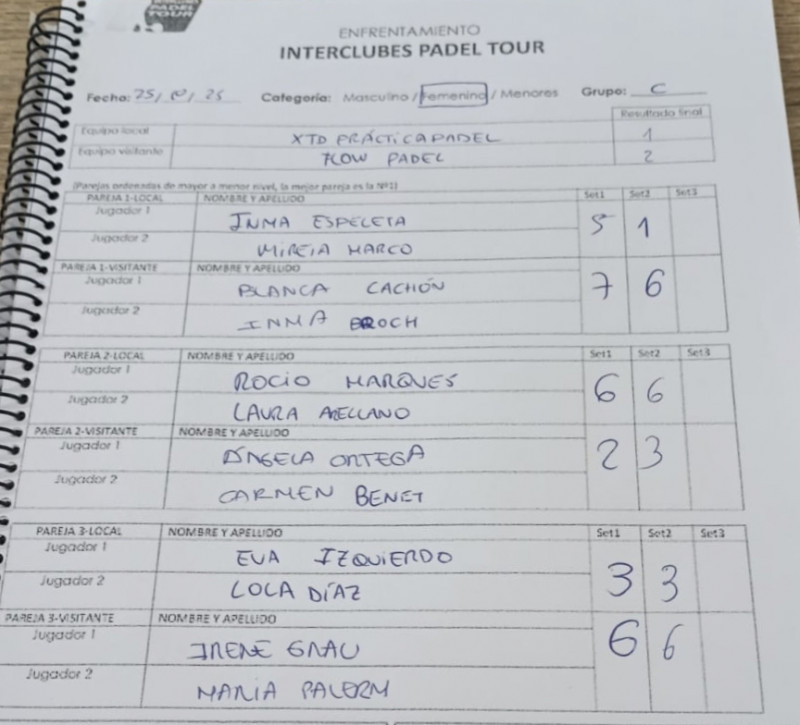 PADEL
TOUR
ENFRENTAMIENTO
INTERCLUBES PADEL TOUR
Fecha: 25/10/25 Categoría: Masculino / Femenino / Menores Grupo: C
Resultado final
Equipo local XTD PRÁCTICAPADEL 1
Equipo visitante FLOW PADEL 2
(Parejas ordenadas de mayor a menor nivel, la mejor pareja es la Nº1)
PAREJA 1-LOCAL NOMBRE Y APELLIDO Set1 Set2 Set3
Jugador 1 INMA ESPELETA 5 1
Jugador 2 MIREIA MARCO
PAREJA 1-VISITANTE NOMBRE Y APELLIDO
Jugador 1 BLANCA CACHÓN 7 6
Jugador 2 INMA BROCH
PAREJA 2-LOCAL NOMBRE Y APELLIDO Set1 Set2 Set3
Jugador 1 ROCIO MARQUES 6 6
Jugador 2 LAURA ARELLANO
PAREJA 2-VISITANTE NOMBRE Y APELLIDO
Jugador 1 ÁNGELA ORTEGA 2 3
Jugador 2 CARMEN BENET
PAREJA 3-LOCAL NOMBRE Y APELLIDO Set1 Set2 Set3
Jugador 1 EVA IZQUIERDO 3 3
Jugador 2 LOLA DÍAZ
PAREJA 3-VISITANTE NOMBRE Y APELLIDO
Jugador 1 IRENE GRAU 6 6
Jugador 2 MARIA PALERM